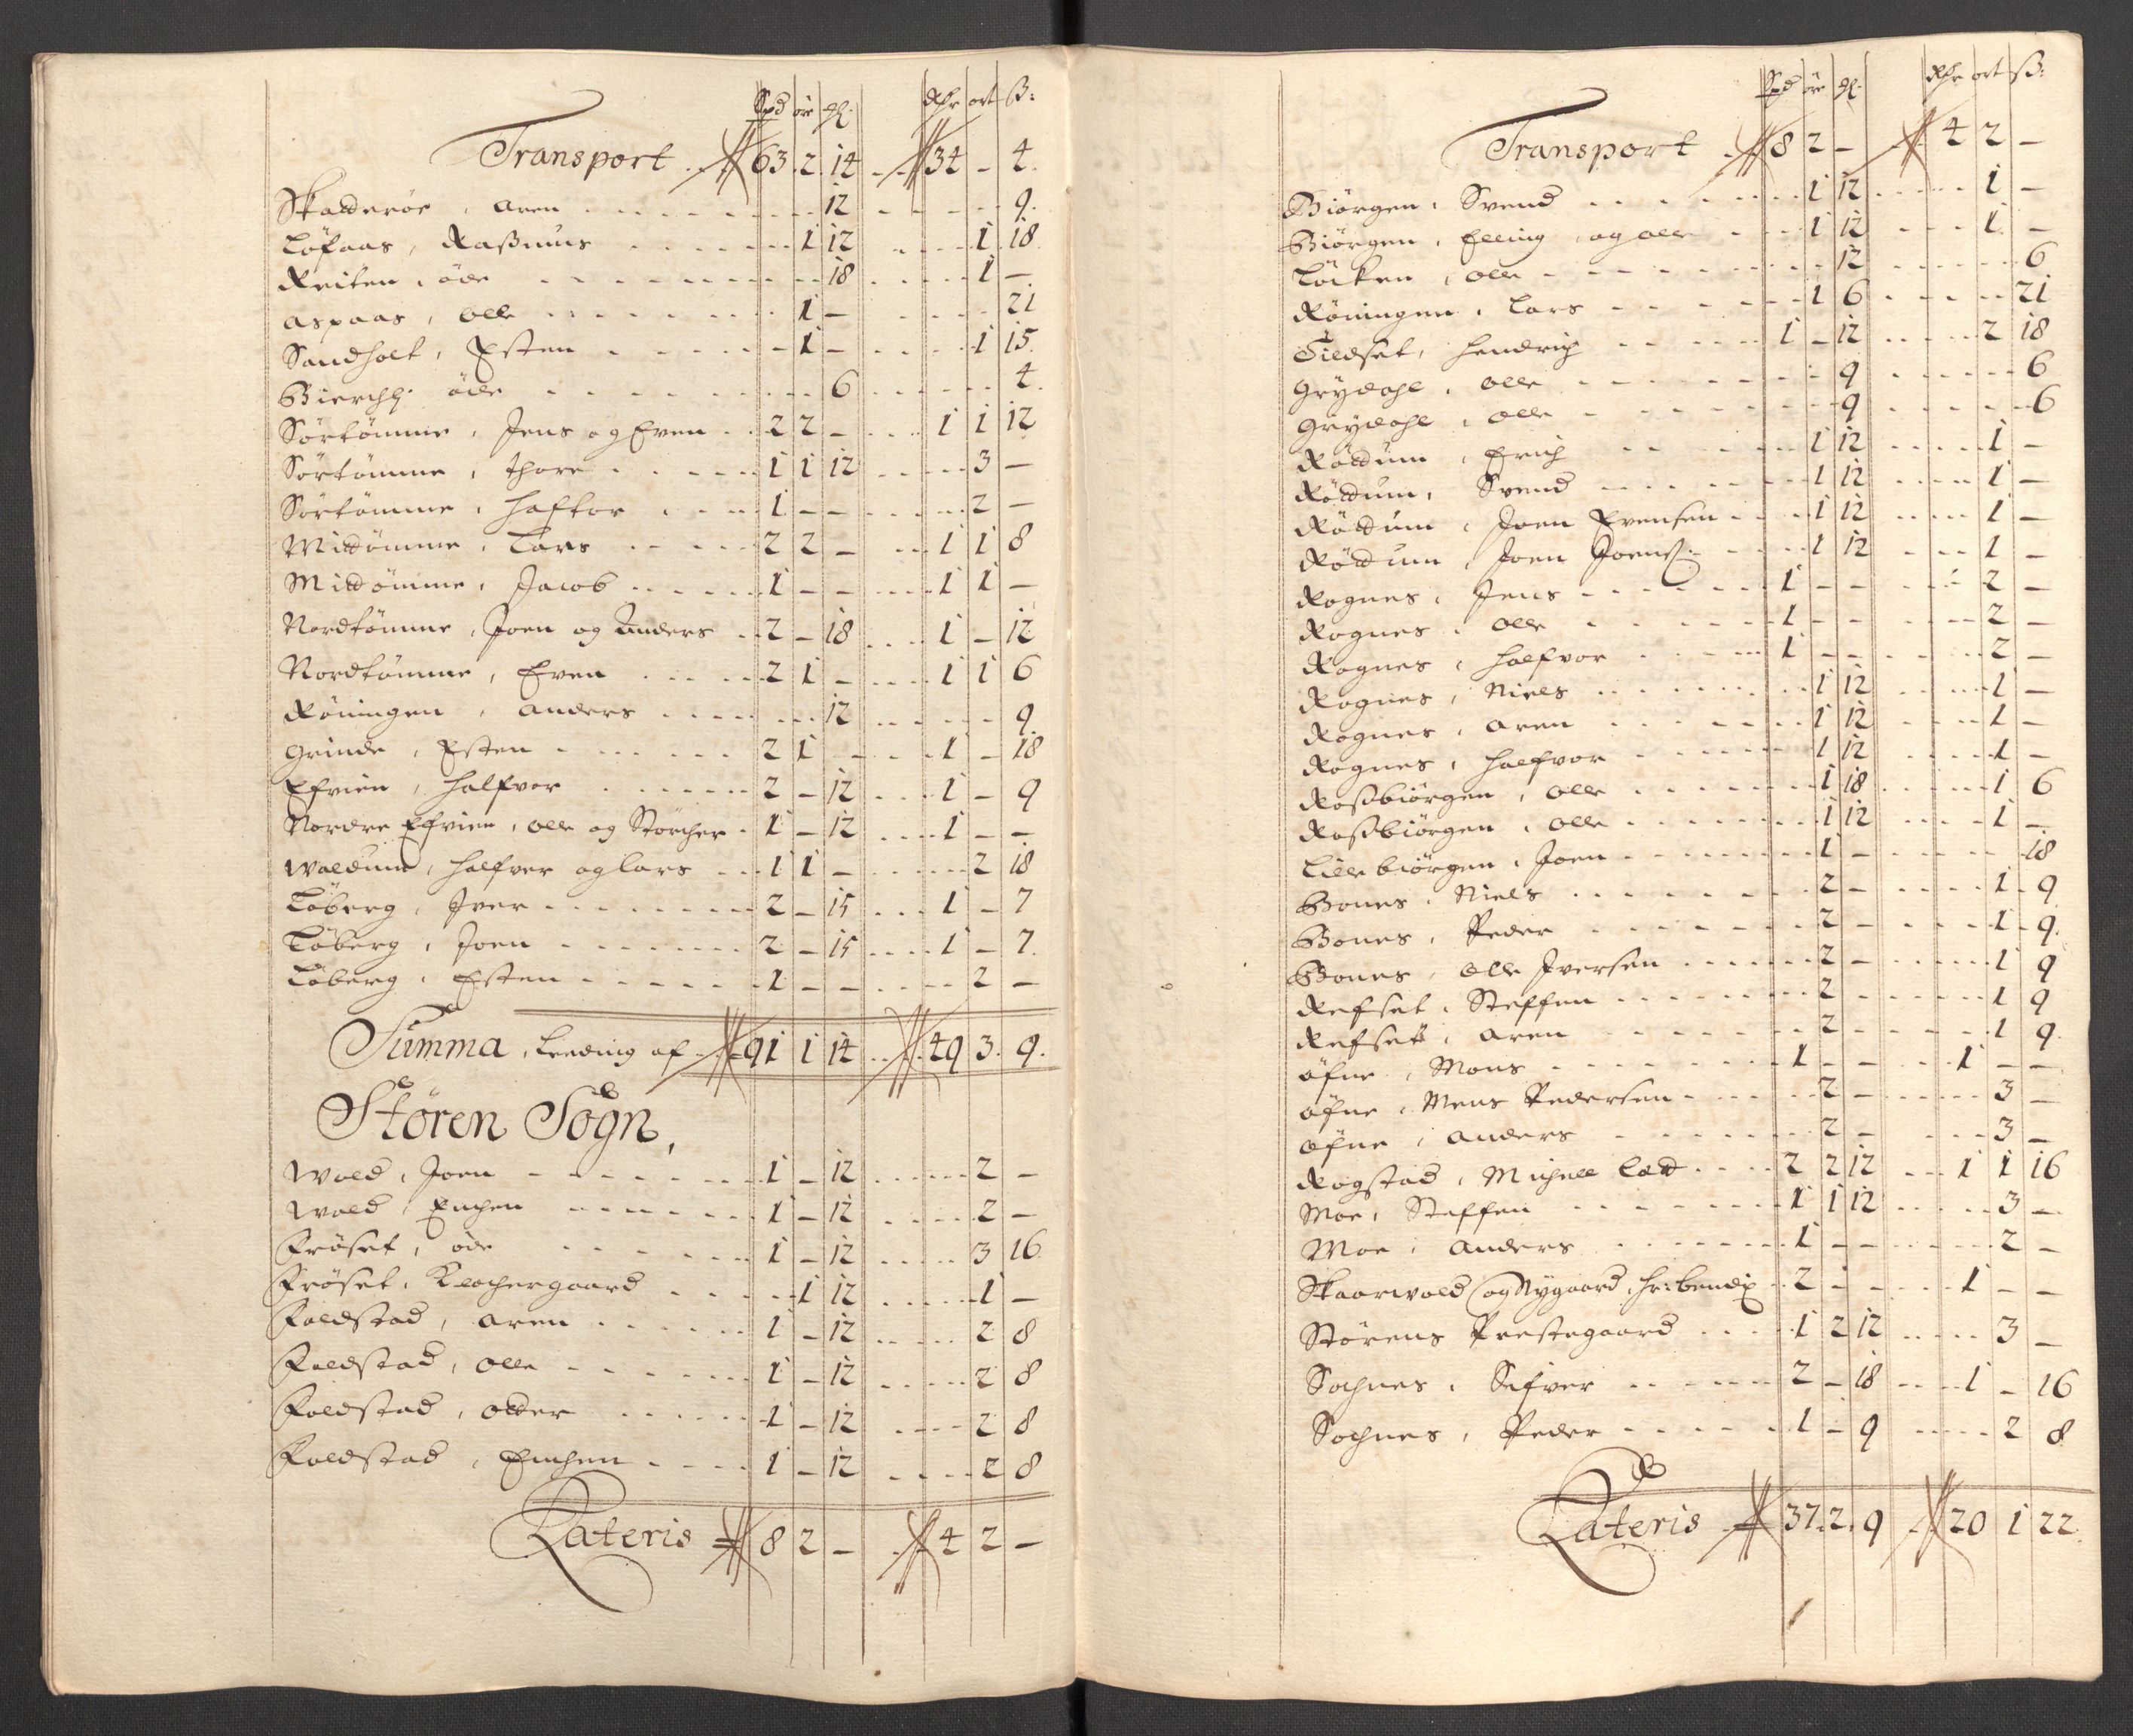 Spd öre gl: Rdr ort ß:
Transport 63 2 14 34 - 4
Skaldrøe, Aren 12 9
Löfaas, Rasmus 1 12 1 18
Reiten, öde 18 1 -
Aspaas, Olle 1 - 21
Sandholt, Esten 1 - 1 15
Bierchl: öde 6 4
Sörtömme, Jens og Even 2 2 - 1 1 12
Sörtömme, Thore 1 1 12 3 -
Sörtömme, Haftor 1 - - 2 -
Midtömme, Lars 2 2 - 1 1 8
Midtömme, Jacob 1 - - 1 1 -
Nordtömme, Joen og Anders 2 - 18 1 - 12
Nordtömme, Even 2 1 - 1 1 6
Röningen, Anders 12 9
Grinde, Esten 2 1 - 1 - 18
Efvien, Halfvor 2 - 12 1 - 9
Nordre Efvien, Olle og Störcher 1 - 12 1 - -
Waldum, Halfver og Lars 1 1 - 2 18
Löberg, Iver 2 - 15 1 - 7
Löberg, Joen 2 - 15 1 - 7
Löberg, Esten 1 - - 2 -
Summa, Leeding af 91 1 14 49 3 9
Støren Sogn,
Wold, Joen 1 - 12 2 -
Wold, Enchen 1 - 12 2 -
Fröset, öde 1 - 12 3 16
Fröset, Klochergaard 1 12 1 -
Foldstad, Aren 1 - 12 2 8
Foldstad, Olle 1 - 12 2 8
Foldstad, Older 1 - 12 2 8
Foldstad, Enchen 1 - 12 2 8
Lateris 8 2 - 4 2 -
Spd öre gl: Rdr ort ß:
Transport 8 2 - 4 2 -
Biörgen, Svend 1 12 1 -
Biörgen, Elling og Olle 1 12 1 -
Löcken, Olle 12 6
Röningen, Lars 1 6 21
Tildset, Hendrich 1 - 12 2 18
Grydahl, Olle 9 6
Grydahl, Olle 9 6
Röldum, Erich 1 12 1 -
Röldum, Svend 1 12 1 -
Röldum, Joen Evensen 1 12 1 -
Röldum, Joen Joens: 1 12 1 -
Rognes, Jens 1 - - 2 -
Rognes, Olle 1 - - 2 -
Rognes, Halfvor 1 - - 2 -
Rognes, Niels 1 12 1 -
Rognes, Aren 1 12 1 -
Rognes, Halfvor 1 12 1 -
Rossbiörgen, Olle 1 18 1 6
Rossbiörgen, Olle 1 12 1 -
Lille biörgen, Joen 1 - 18
Bones, Niels 2 - 1 9
Bones, Peder 2 - 1 9
Bones, Olle Iversen 2 - 1 9
Refset, Steffen 2 - 1 9
Refset, Aren 2 - 1 9
Öfne, Mons 1 - - 1 - -
Öfne, Mons Pedersen 2 - 3 -
Öfne, Anders 2 - 3 -
Rogstad, Michell 2 2 12 1 1 16
Moe, Steffen 1 1 12 3 -
Moe, Anders 1 - - 2 -
Skaarvold og Nygaard, Hr: Bendix 2 - - 1 - -
Störens Prestegaard 1 2 12 3 -
Sochnes, Sifver 2 - 18 1 - 16
Sochnes, Peder 1 - 9 2 8
Lateris 37 2 9 20 1 22